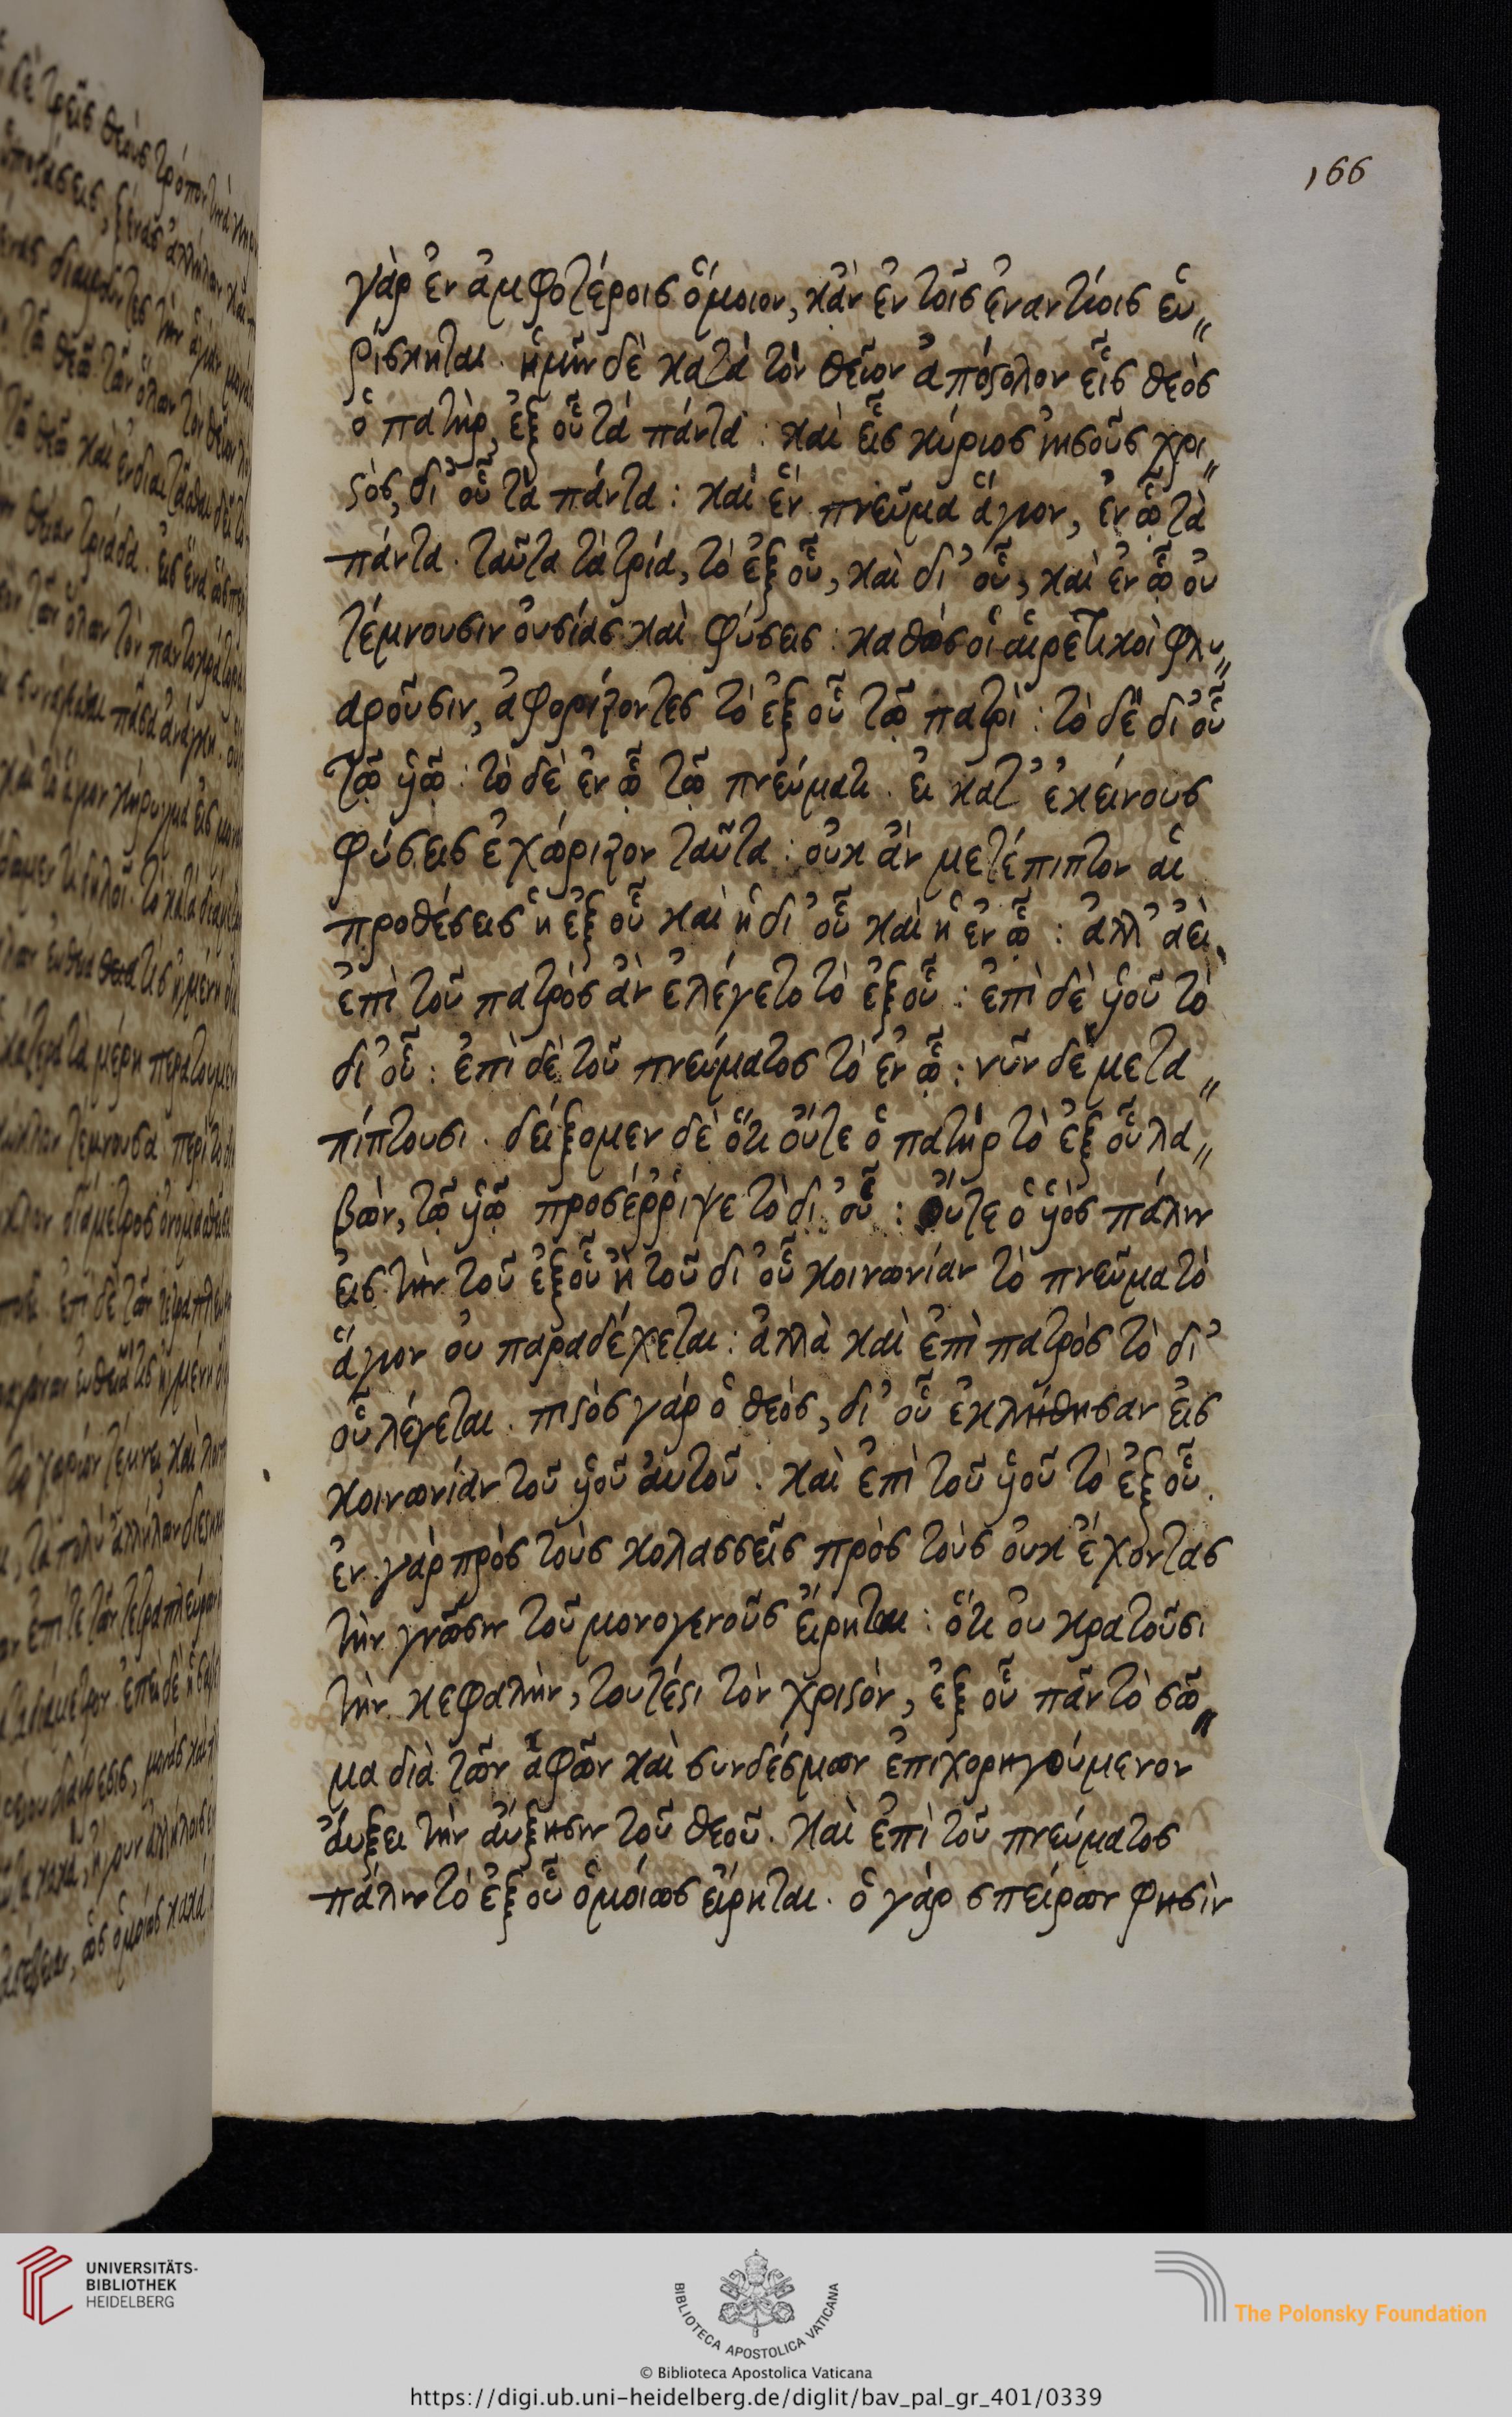 166
γὰρ ἐν ἀμφοτέροις ὅμοιον, κἂν ἐν τοῖς ἐναντίοις εὑ〃
ρίσκηται. ἡμῖν δὲ κατὰ τὸν θεῖον ἀπόστολον εἷς θεὸς
ὁ πατὴρ, ἐξ οὗ τὰ πάντα: καὶ εἷς κύριος ἰησοῦς χρι〃
στὸς, δι’ οὗ τὰ πάντα: καὶ ἓν πνεῦμα ἅγιον, ἐν ᾧ τὰ
πάντα. ταῦτα τὰ τρία, τὸ ἐξ οὗ, καὶ δι’ οὗ, καὶ ἐν ᾧ οὐ
τέμνουσιν οὐσίας καὶ φύσεις: καθὼς οἱ αἱρετικοὶ φλυ〃
αροῦσιν, ἀφορίζοντες τὸ ἐξ οὗ τῷ πατρὶ: τὸ δὲ δι’ οὗ
τῷ ὑῷ: τὸ δὲ ἐν ᾧ τῷ πνεύματι. εἰ κατ’ ἐκείνους
φύσεις ἐχώριζον ταῦτα: οὐκ ἂν μετέπιπτον αἱ
προθέσεις ἡ ἐξ οὗ καὶ ἡ δι’ οὗ καὶ ἡ ἐν ᾧ: ἀλλ’ ἀεὶ
ἐπὶ τοῦ πατρὸς ἂν ἐλέγετο τὸ ἐξ οὗ: ἐπὶ δὲ ὑοῦ τὸ
δι’ οὗ: ἐπὶ δὲ τοῦ πνεύματος τὸ ἐν ᾧ: νῦν δὲ μετα〃
πίπτουσι. δείξομεν δὲ ὅτι οὔτε ὁ πατὴρ τὸ ἐξ οὗ λα〃
βὼν, τῷ ὑῷ προσέῤῥιψε τὸ δι’ οὗ: οὔτε ὁ ὑὸς πάλιν
εἰς τὴν τοῦ ἐξ οὗ ἢ τοῦ δι’ οὗ κοινωνίαν τὸ πνεῦμα τὸ
ἅγιον οὐ παραδέχεται: ἀλλὰ καὶ ἐπὶ πατρὸς τὸ δι’
οὗ λέγεται. πιστὸς γάρ ὁ θεὸς, δι’ οὗ ἐκλήθησαν εἰς
κοινωνίαν τοῦ ὑοῦ αὐτοῦ. καὶ ἐπὶ τοῦ ὑοῦ τὸ ἐξ οὗ.
ἐν γὰρ πρὸς τοὺς κολασσεῖς πρὸς τοὺς οὐκ ἔχοντας
τὴν γνῶσιν τοῦ μονογενοῦς εἴρηται: ὅτι οὐ κρατοῦσι
τὴν κεφαλὴν, τουτέστι τὸν χριστὸν, ἐξ οὗ πᾶν τὸ σῶ〃
μα διὰ τῶν ἁφῶν καὶ συνδέσμων ἐπιχορηγούμενον
αὔξει τὴν αὔξησιν τοῦ θεοῦ. καὶ ἐπὶ τοῦ πνεύματος
πάλιν τὸ ἐξ οὗ ὁμοίως εἴρηται. ὁ γὰρ σπείρων φησὶν
UNIVERSITÄTS-
BIBLIOTHEK
HEIDELBERG
BIBLIOTECA APOSTOLICA VATICANA
© Biblioteca Apostolica Vaticana
The Polonsky Foundation
https://digi.ub.uni-heidelberg.de/diglit/bav_pal_gr_401/0339